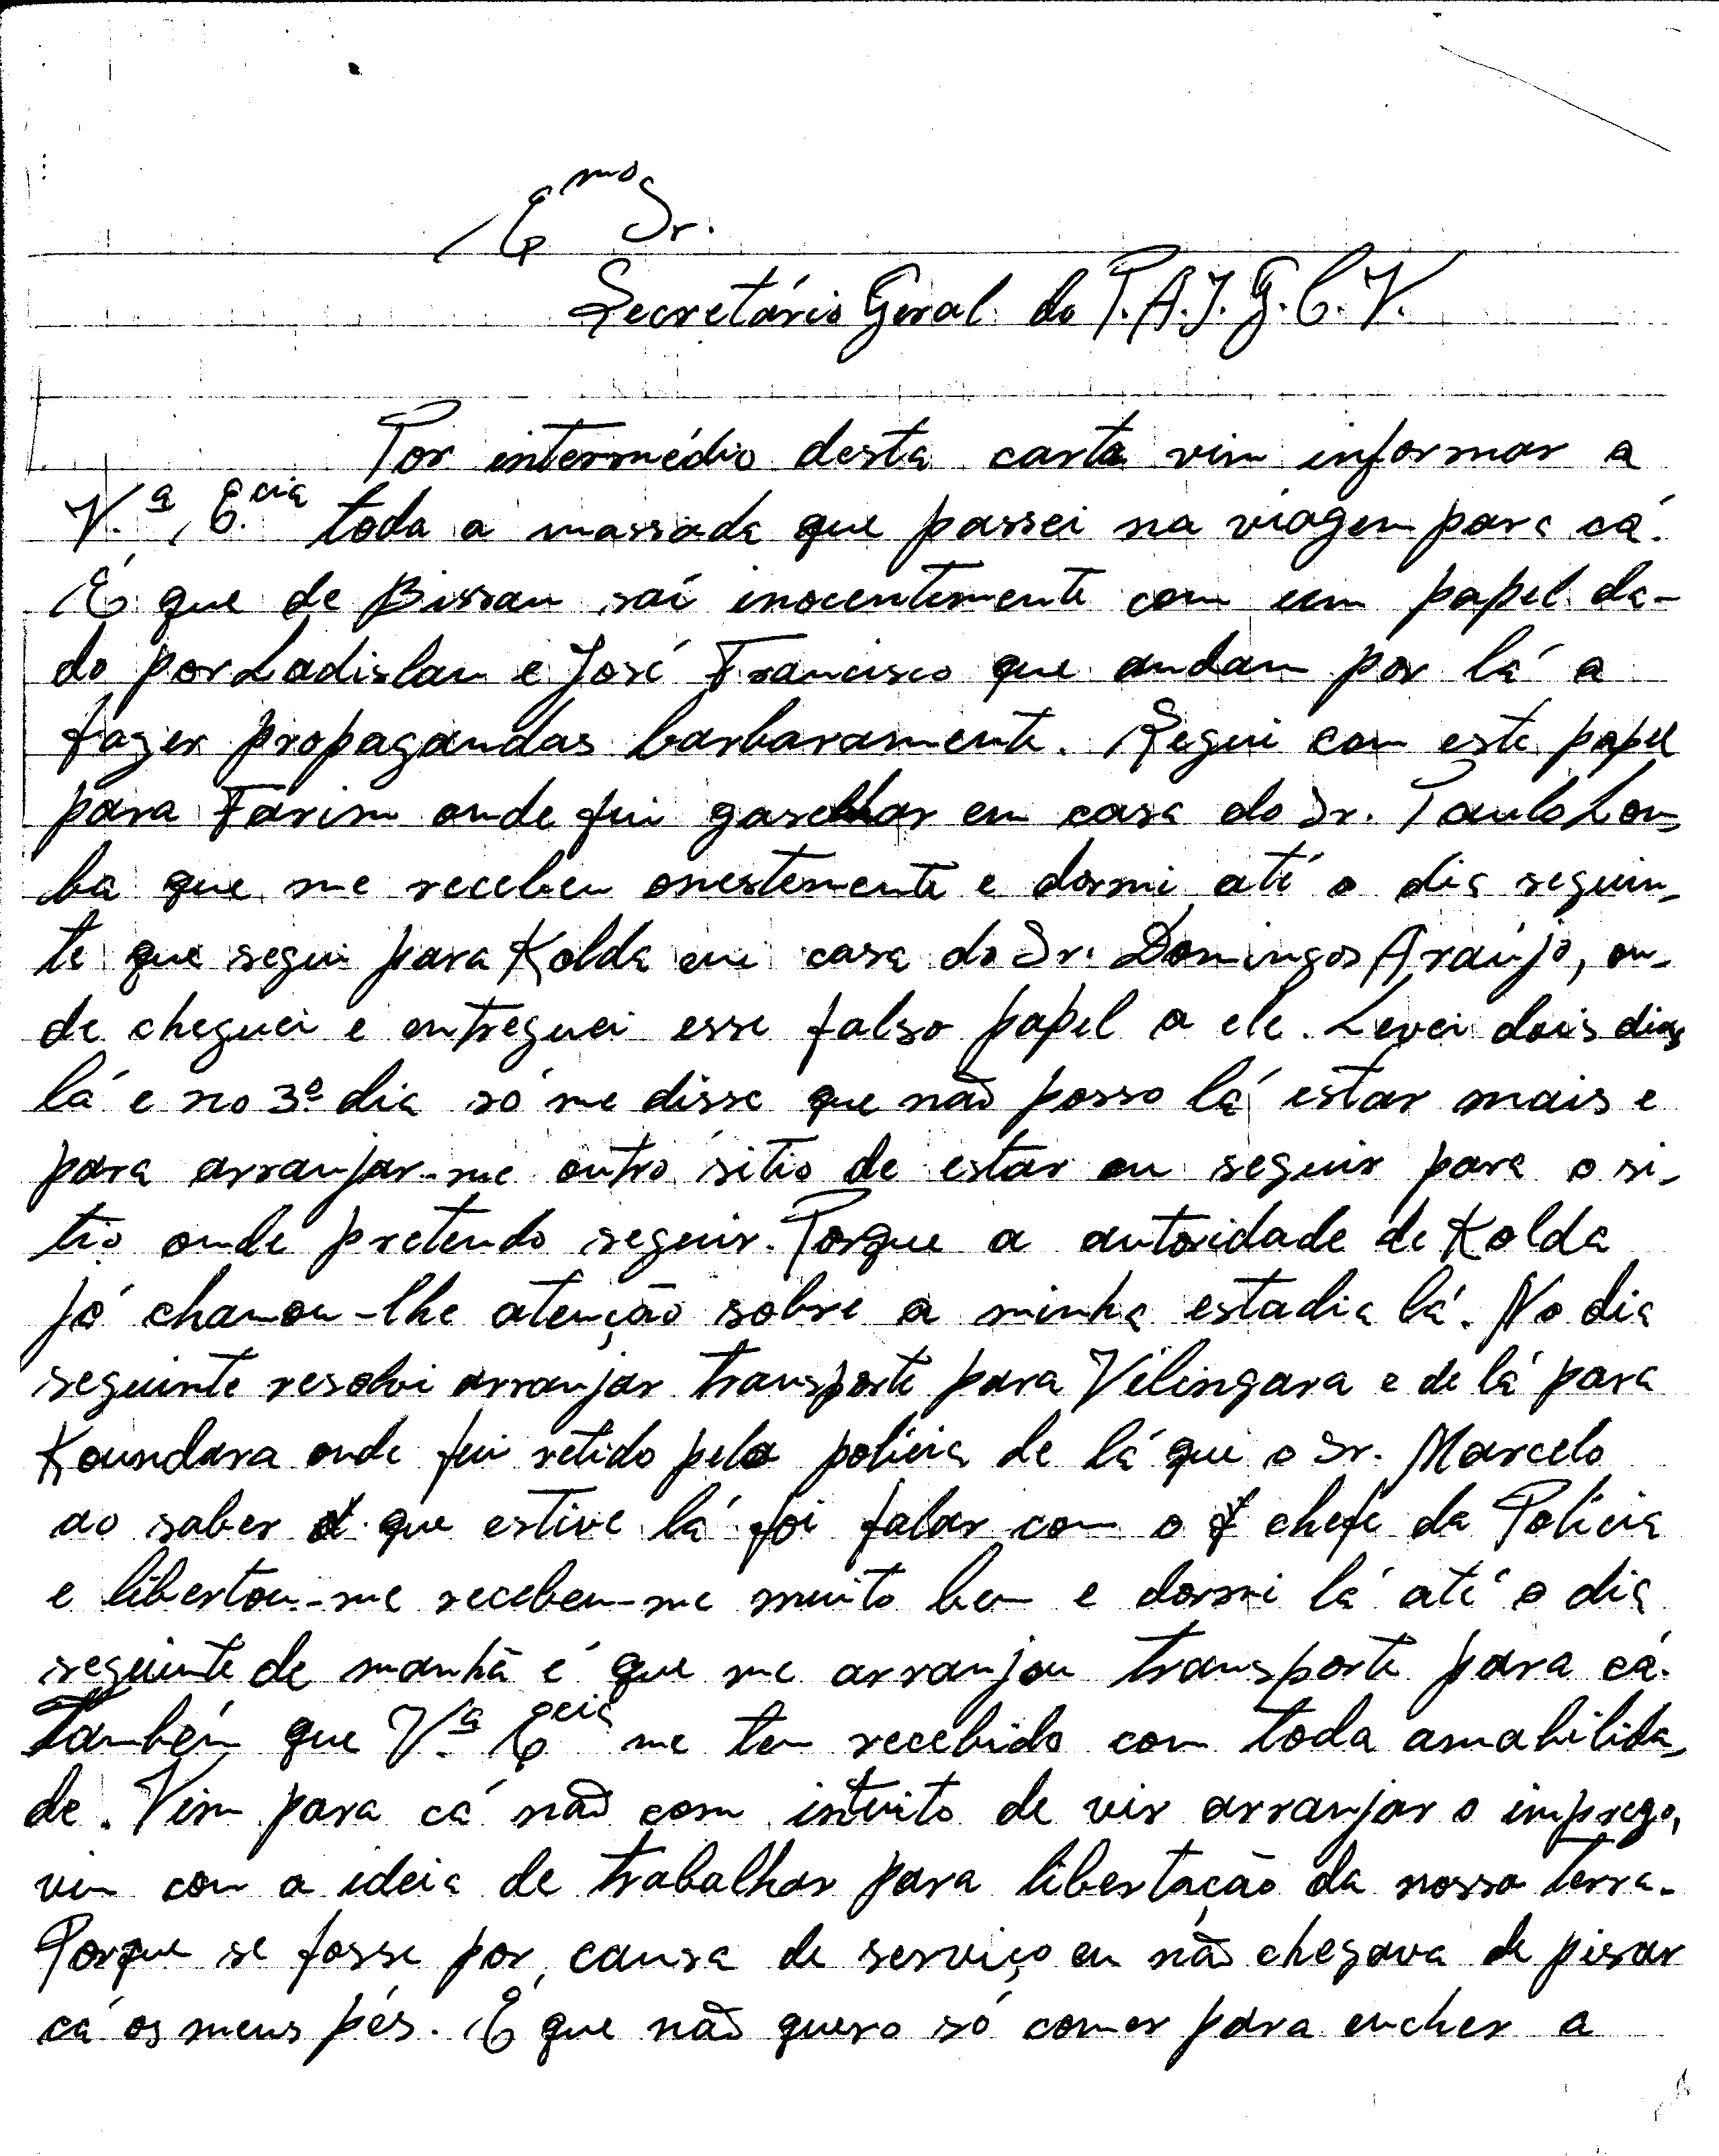 Emo Sr.
Secretário Geral do P.A.I.G.C.V.
Por intermédio desta carta vim informar a
V.ª, E.cia toda a massada que passei na viagem para cá.
É que de Bissau saí inocentemente com um papel da-
do por Ladislau e José Francisco que andam por lá a
fazer propagandas barbaramente. Segui com este papel
para Farim onde fui em casa do Sr. Paulo Lom-
ba que me recebeu onestemente e dormi até o dia seguin-
te que segui para Kolda em casa do Sr. Domingos Araújo, on-
de cheguei e entreguei esse falso papel a ele. Levei dois dias
lá e no 3º dia só me disse que não posso lá estar mais e
para arranjar-me outro sitio de estar ou seguir para o si-
tio onde pretendo seguir. Porque a autoridade de Kolda
já chamou-lhe atenção sobre a minha estadia lá. No dia
seguinte resolvi arranjar transporte para Vilingara e de lá para
Koundara onde fui retido pela policia de lá que o Sr. Marcelo
ao saber que estive lá foi falar com o chefe da Policia
e libertou-me recebeu-me muito bem e dormi lá até o dia
seguinte de manhã é que me arranjou transporte para cá.
Também que V.ª Ecia me tem recebido com toda amabilida-
de. Vim para cá não com intuito de vir arranjar o imprego,
vim com a ideia de trabalhar para libertação da nossa terra.
Porque se fosse por causa de serviço eu não chegava de pisar
cá os meus pés. É que não quero só comer para encher a